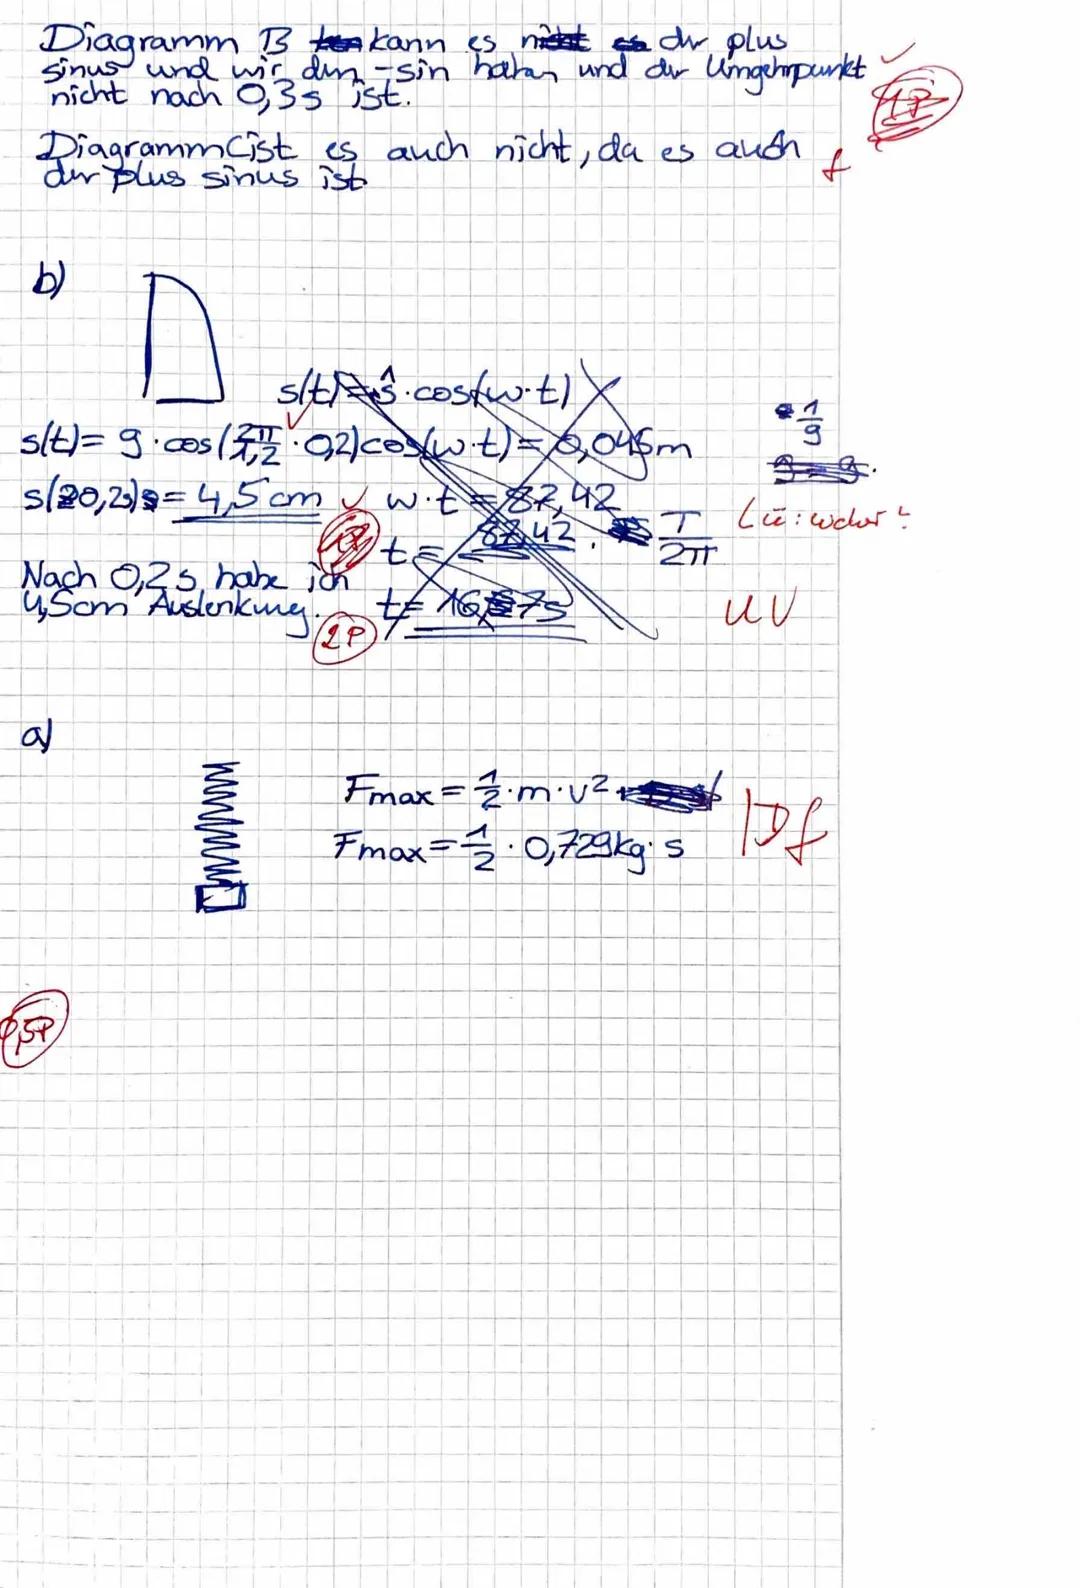 Diagramm B kann es nicht es der plus
sinus und wir den -sin haben und der Umgehrpunkt ✓
nicht nach 0,3s ist. 1P
Diagramm C ist es auch nicht, da es auch
der plus sinus ist f
b)
s(t) = ŝ · cos(w·t)
s(t) = 9 · cos(2π/1,2 · 0,2) cos(w·t) = 0,045m
1/9
s(0,2s) = 4,5 cm ✓ w·t = 87,42
t = 87,42 · T/2π
Nach 0,2s habe ich
4,5cm Auslenkung. t = 16,7s
2P
UV
a)
Fmax = 1/2 · m · v²
Fmax = 1/2 · 0,729kg · s
Df